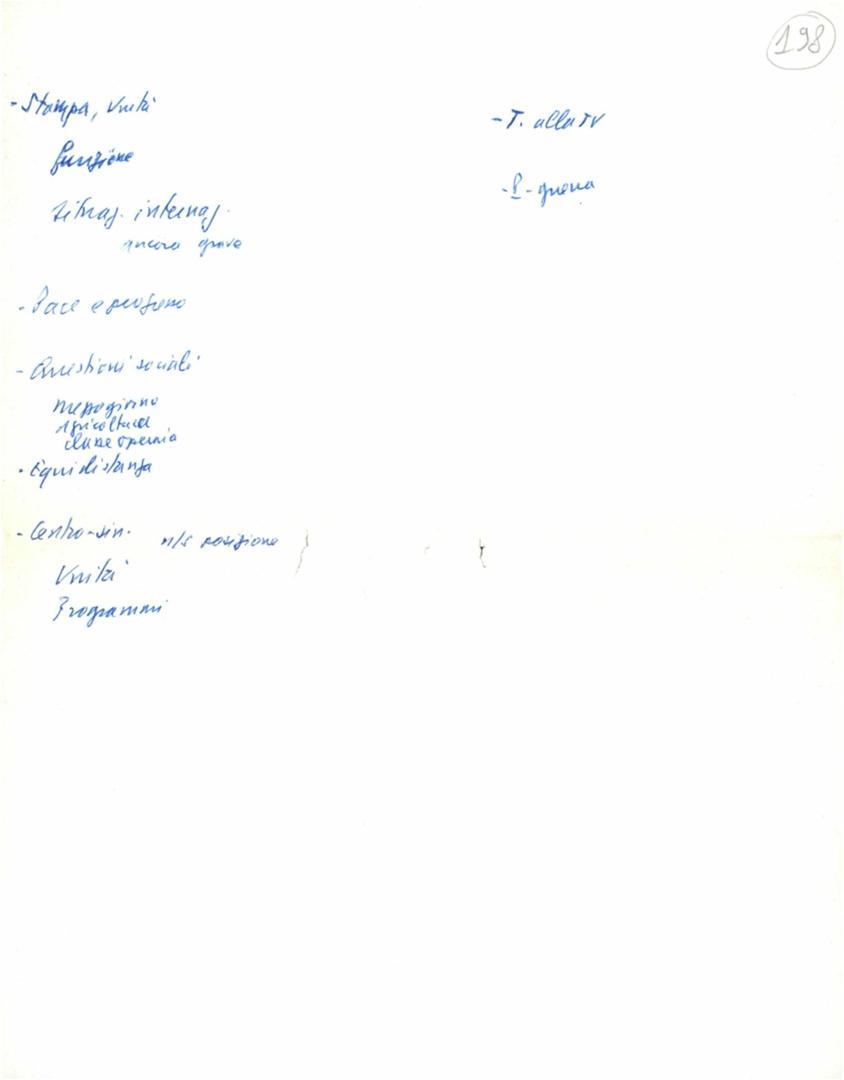 198
- Stampa, Unità
funzione
situaz. internaz.
ancora grave
- Pace e
- Questioni sociali
mezzogiorno
agricoltura
classe operaia
- Equidistanza
- Centro-sin. n/s posizione
Unità
Programmi
- T. alla TV
- guerra